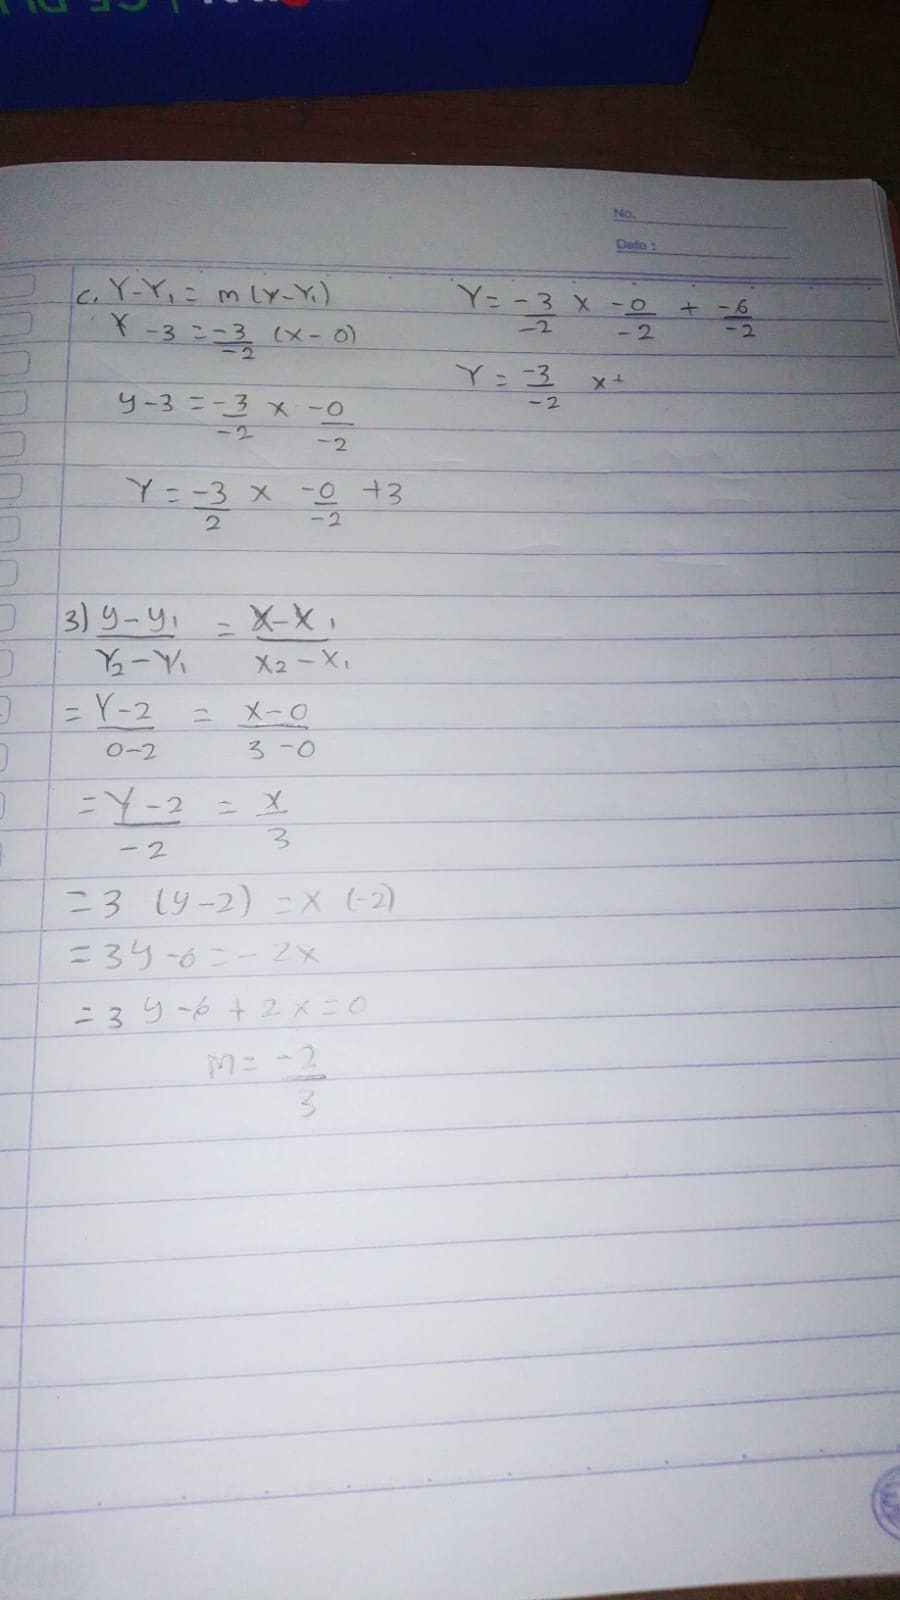 No.
Date :
c. Y-Y₁ = m (x-Y₁)
Y -3 = -3/-2 (x - 0)
y-3 = -3/-2 x -0/-2
Y = -3/2 x -0/-2 +3
Y = -3/-2 x -0/-2 + -6/-2
Y = -3/-2 x +
3) y-y₁/Y₂-Y₁ = x-x₁/x₂-x₁
= Y-2/0-2 = x-0/3-0
= Y-2/-2 = x/3
= 3 (y-2) = x (-2)
= 3y -6 = - 2x
= 3y -6 + 2x = 0
m = -2/3